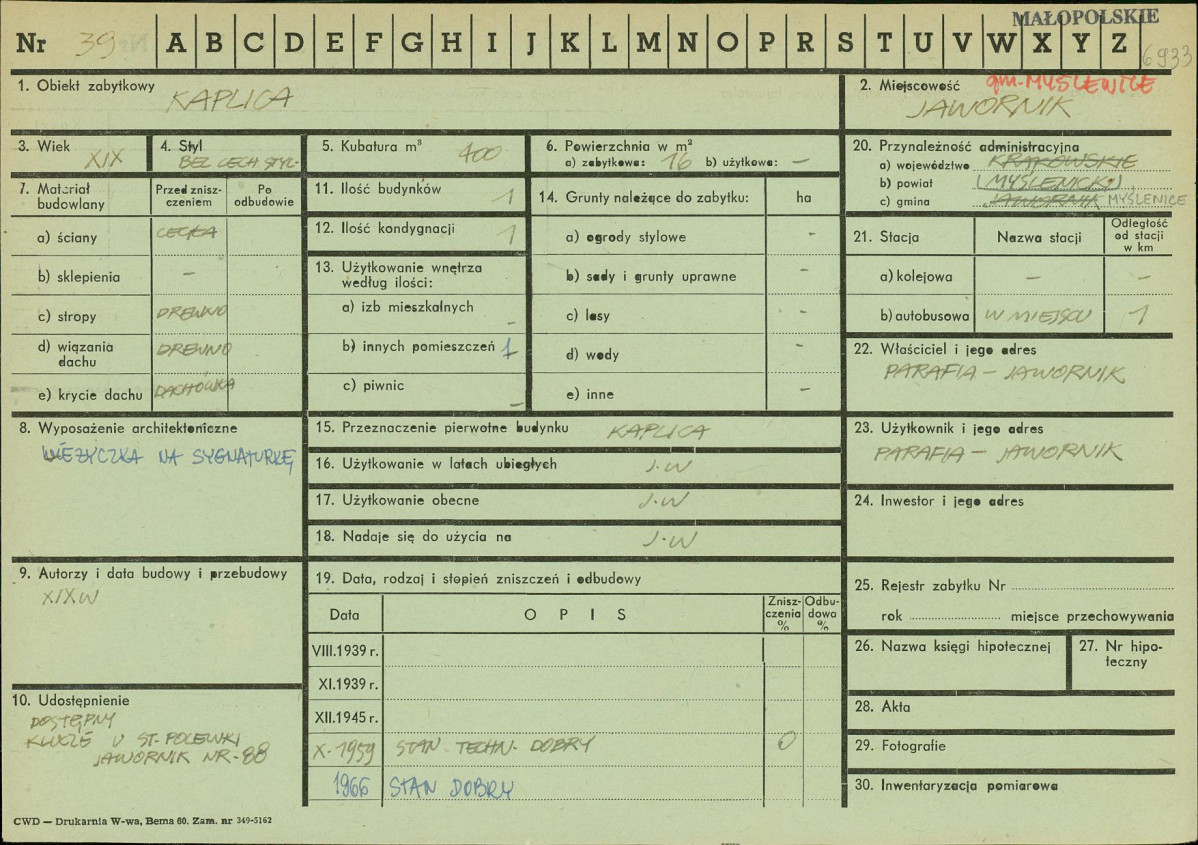 MAŁOPOLSKIE
Nr 39 A B C D E F G H I J K L M N O P R S T U V W X Y Z
6933
1. Obiekt zabytkowy
KAPLICA
2. Miejscowość gm. MYŚLENICE
JAWORNIK
3. Wiek
XIX
4. Styl
BEZ CECH STYL-
5. Kubatura m³ 400
6. Powierzchnia w m²
a) zabytkowa: 16 b) użytkowa: –
7. Materiał budowlany
Przed zniszczeniem
Po odbudowie
a) ściany CEGŁA
b) sklepienia –
c) stropy DREWNO
d) wiązania dachu DREWNO
e) krycie dachu DACHÓWKA
8. Wyposażenie architektoniczne
WIEŻYCZKA NA SYGNATURKĘ
9. Autorzy i data budowy i przebudowy
XIX W
10. Udostępnienie
DOSTĘPNY
KLUCZE U ST. POLEWKI
JAWORNIK NR-88
11. Ilość budynków 1
12. Ilość kondygnacji 1
13. Użytkowanie wnętrza według ilości:
a) izb mieszkalnych –
b) innych pomieszczeń 1
c) piwnic –
14. Grunty należące do zabytku: ha
a) ogrody stylowe –
b) sady i grunty uprawne –
c) lasy –
d) wody –
e) inne –
15. Przeznaczenie pierwotne budynku KAPLICA
16. Użytkowanie w latach ubiegłych J.W
17. Użytkowanie obecne J.W
18. Nadaje się do użycia na J.W
19. Data, rodzaj i stopień zniszczeń i odbudowy
Data OPIS Zniszczenia % Odbudowa %
VIII.1939 r.
XI.1939 r.
XII.1945 r.
X-1959 STAN TECHN. DOBRY 0
1966 STAN DOBRY
20. Przynależność administracyjna
a) województwo KRAKOWSKIE
b) powiat (MYŚLENICKI)
c) gmina JAWORNIK MYŚLENICE
21. Stacja Nazwa stacji Odległość od stacji w km
a) kolejowa – –
b) autobusowa W MIEJSCU 1
22. Właściciel i jego adres
PARAFIA – JAWORNIK
23. Użytkownik i jego adres
PARAFIA – JAWORNIK
24. Inwestor i jego adres
25. Rejestr zabytku Nr
rok miejsce przechowywania
26. Nazwa księgi hipotecznej
27. Nr hipoteczny
28. Akta
29. Fotografie
30. Inwentaryzacja pomiarowa
CWD — Drukarnia W-wa, Bema 60. Zam. nr 349-5162